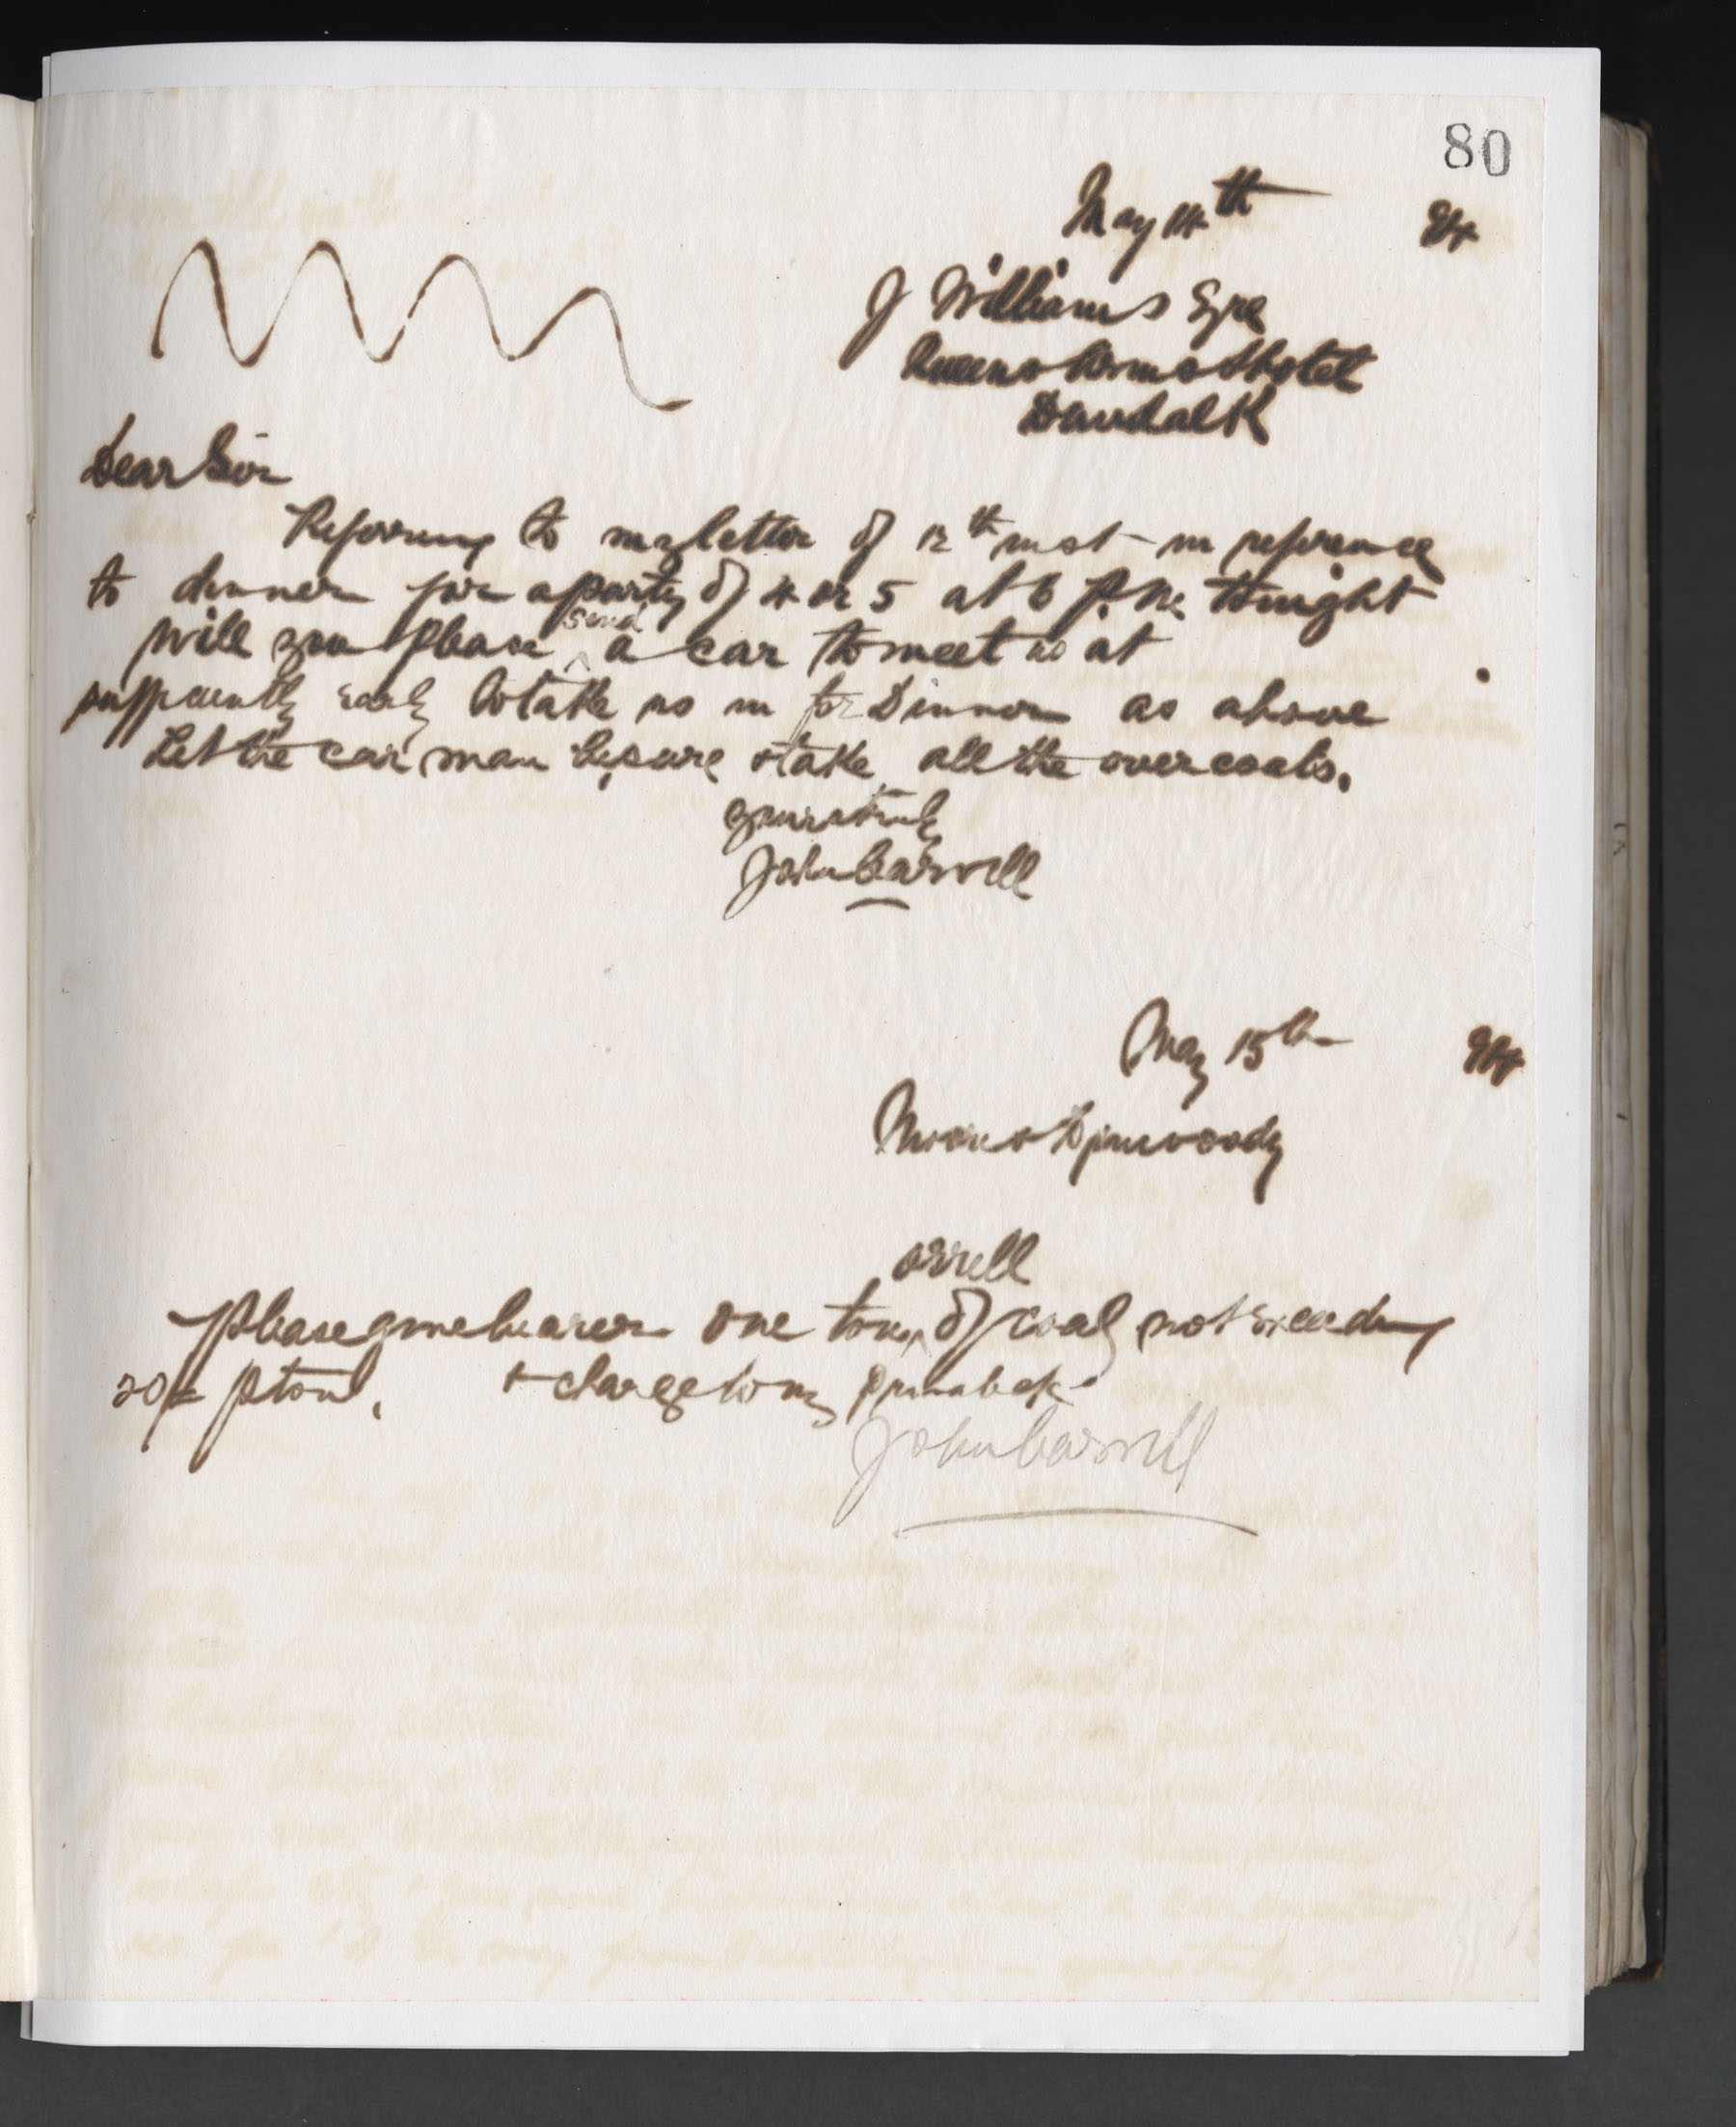 80
May 14th 94
J Williams Esqre
Queens Arms Hotel
Dundalk
Dear Sir
Referring to my letter of 12th inst in reference
to dinner for a party of 4 or 5 at 6 P.M. tonight
will you please send a car to meet us at
sufficiently early to take us in for Dinner as above
Let the car man be sure & take all the overcoats.
yours truly
John Carvill
May 15th 94
please give bearer one ton orrell of coal not exceeding
20/- p ton. & charge to my
John Carvill